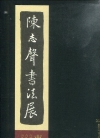 陳志聲書法展